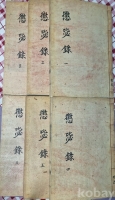 懲毖錄 一
懲毖錄 二
懲毖錄
懲毖錄
懲毖錄
懲毖錄
kobay